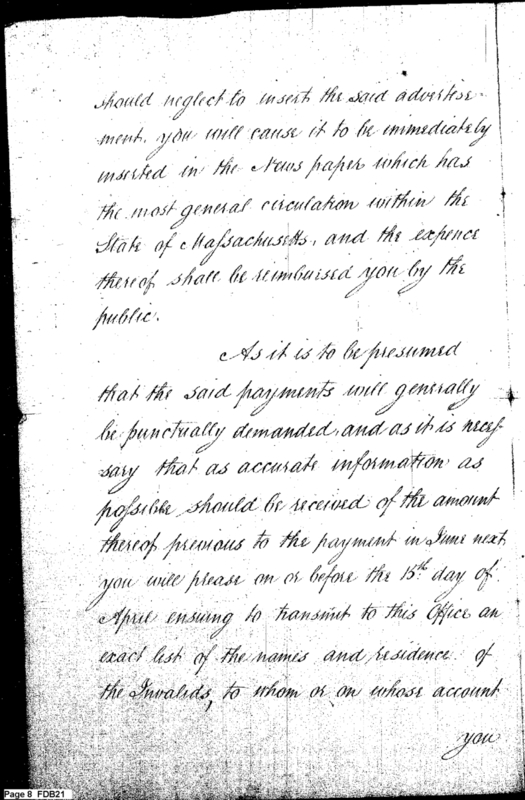 should neglect to insert the said advertise-
ment. you will cause it to be immediately
inserted in the News paper which has
the most general circulation within the
State of Massachusetts, and the expence
thereof shall be reimbursed you by the
public.
As it is to be presumed
that the said payments will generally
be punctually demanded, and as it is neces-
sary that as accurate information as
possible should be received of the amount
thereof previous to the payment in June next,
you will please on or before the 15th day of
April ensuing to transmit to this Office an
exact list of the names and residence of
the Invalids, to whom or on whose account
you
Page 8 FDB21